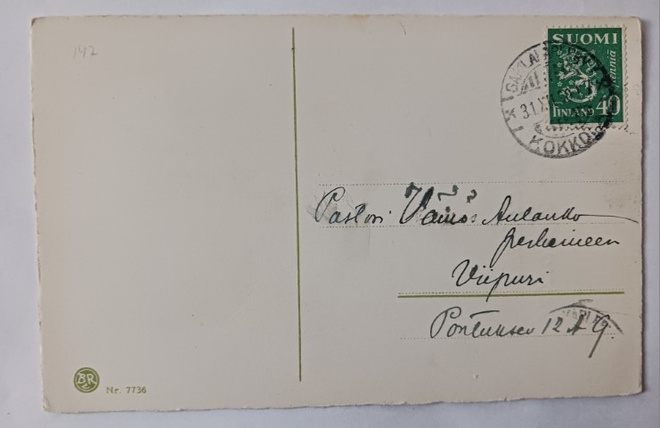 142
SUOMI
FINLAND 40
31.XII
KOKKOLA
Pastori Väinö Aulanko
perheineen
Viipuri
Pontuksen 12 A 9.
BR
Nr. 7736